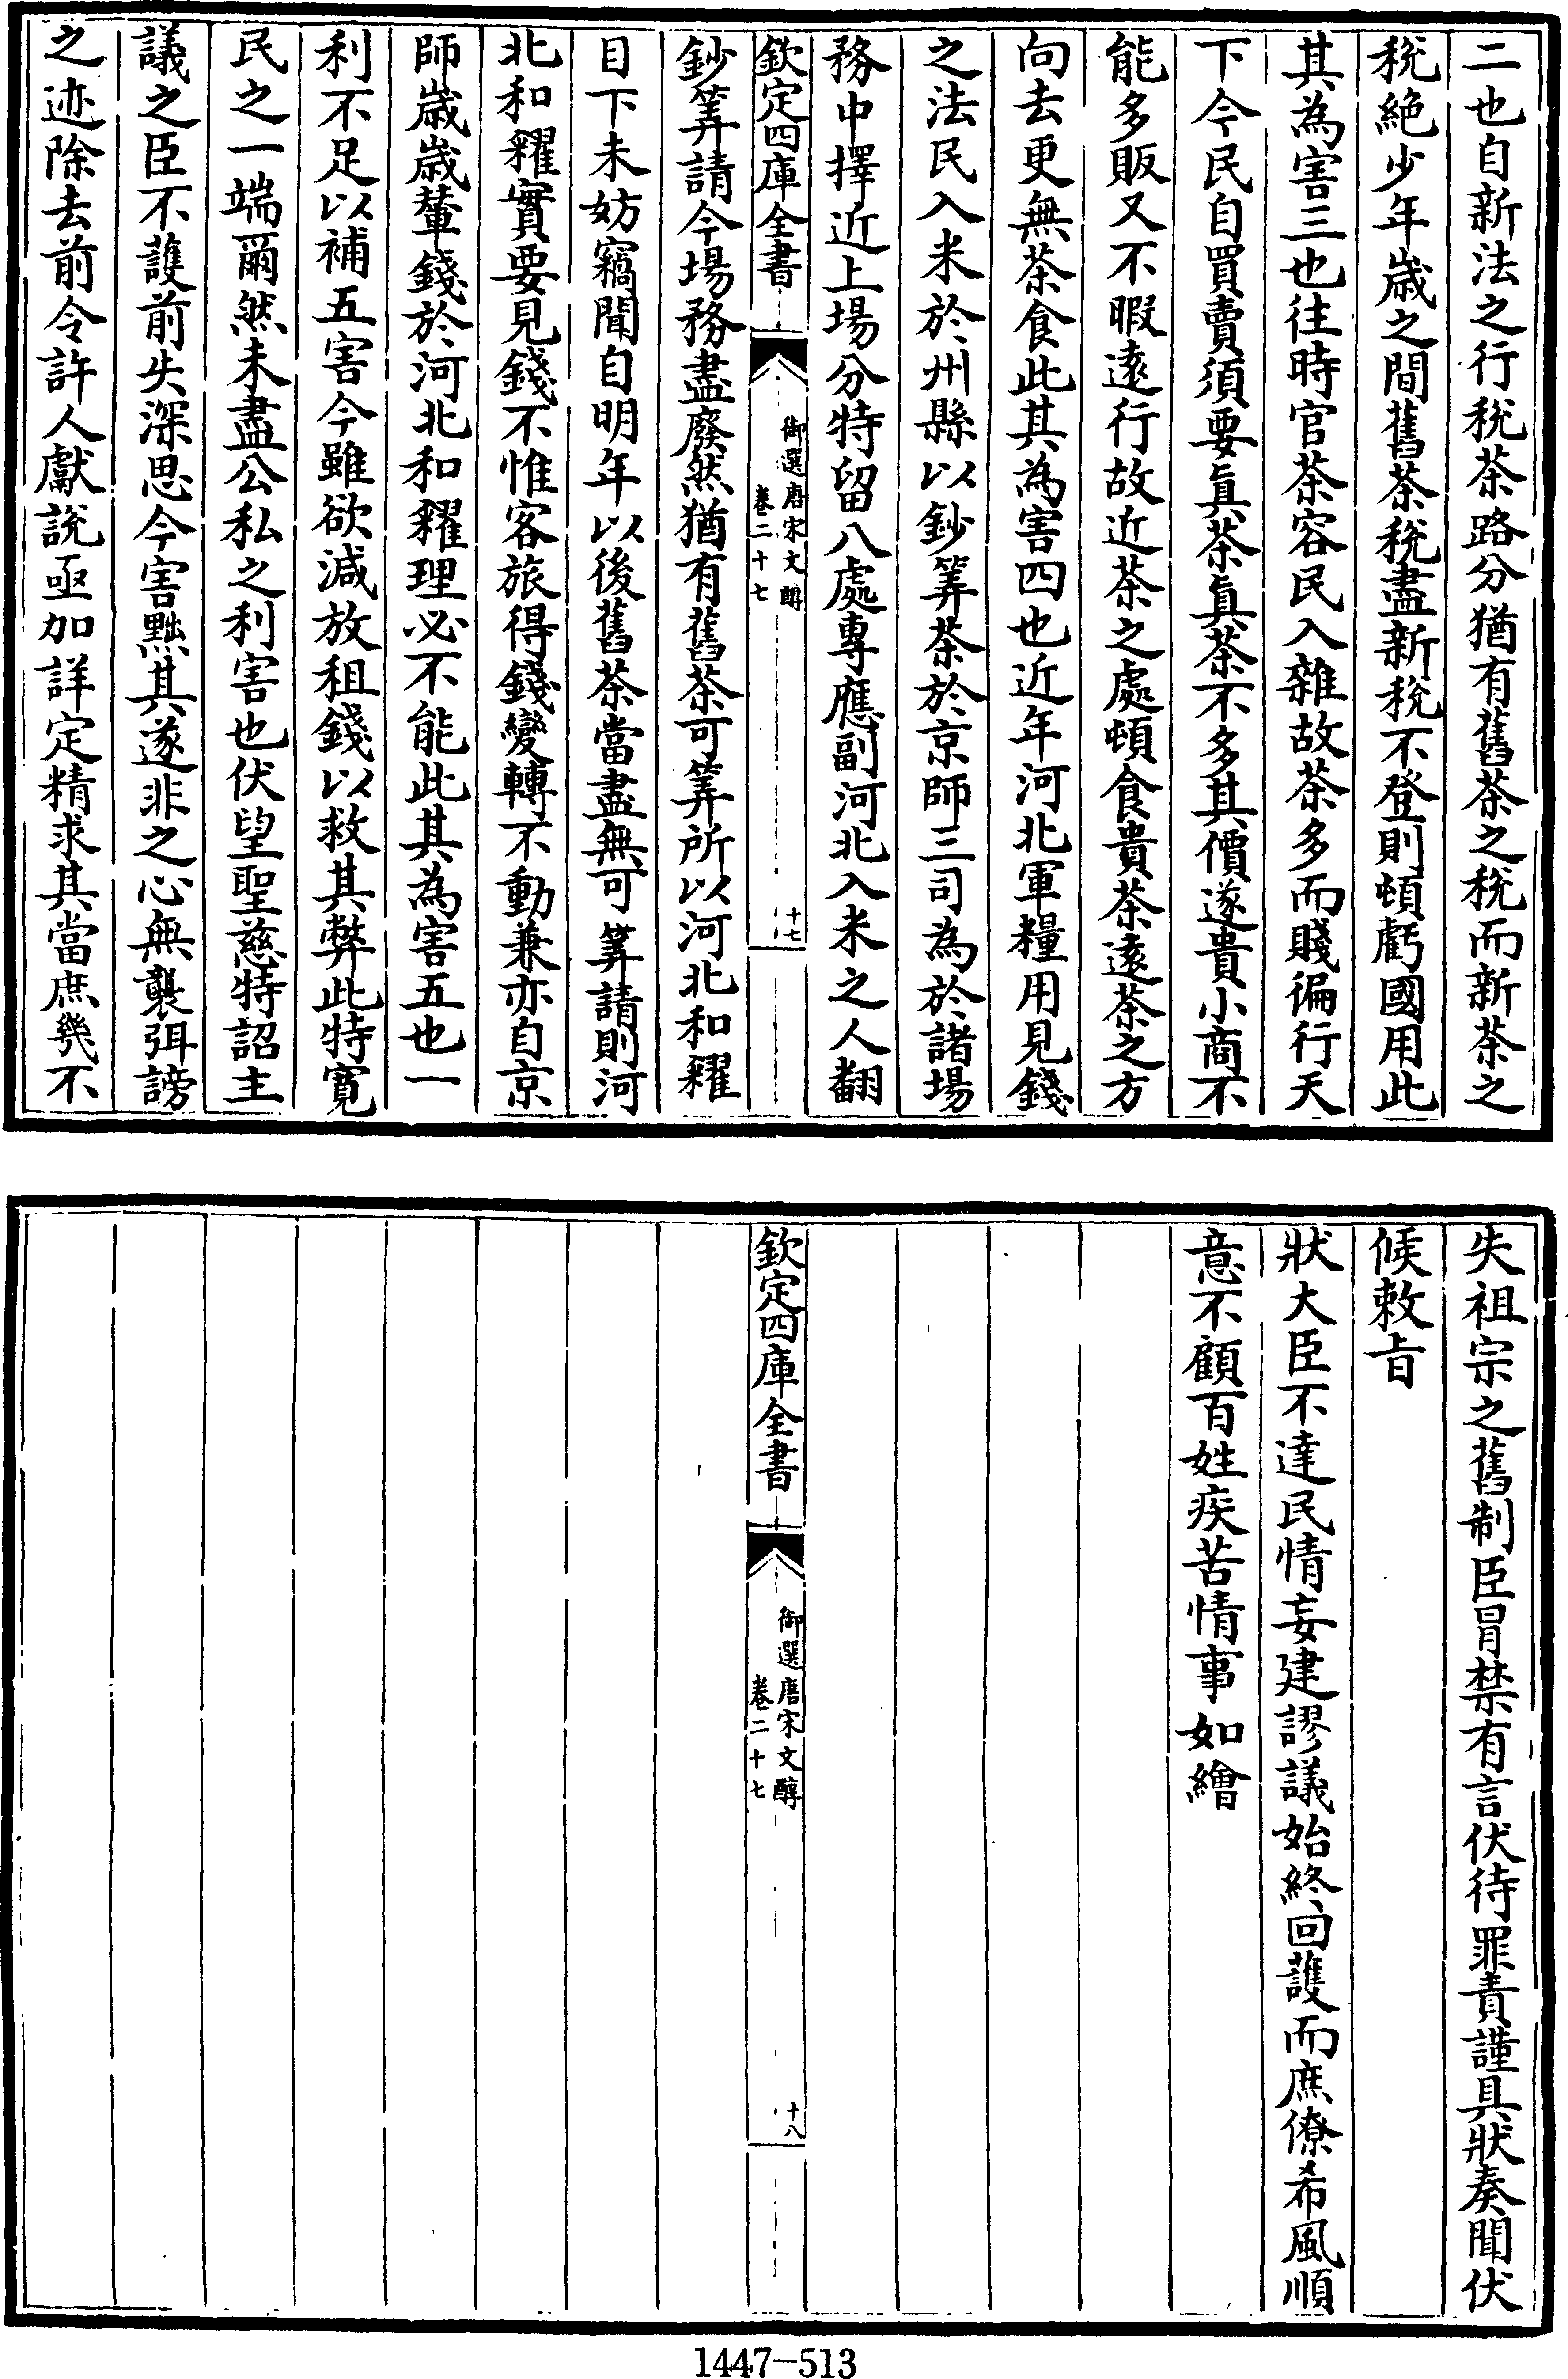 二也自新法之行稅茶路分猶有舊茶之稅而新茶之
稅絶少年歲之間舊茶稅盡新稅不登則頓虧國用此
其為害三也往時官茶容民入雜故茶多而賤徧行天
下今民自買賣須要真茶真茶不多其價遂貴小商不
能多販又不暇遠行故近茶之處頓食貴茶遠茶之方
向去更無茶食此其為害四也近年河北軍糧用見錢
之法民入米於州縣以鈔筭茶於京師三司為於諸場
務中擇近上場分特留八處專應副河北入米之人翻
欽定四庫全書
御選唐宋文醇
卷二十七
十七
鈔筭請今場務盡廢然猶有舊茶可筭所以河北和糴
目下未妨竊聞自明年以後舊茶當盡無可筭請則河
北和糴實要見錢不惟客旅得錢變轉不動兼亦自京
師歲歲輦錢於河北和糴理必不能此其為害五也一
利不足以補五害今雖欲減放租錢以救其弊此特寛
民之一端爾然未盡公私之利害也伏望聖慈特詔主
議之臣不護前失深思今害黜其遂非之心無襲弭謗
之迹除去前令許人獻說亟加詳定精求其當庶幾不
失祖宗之舊制臣冒禁有言伏待罪責謹具狀奏聞伏
候敕旨
狀大臣不達民情妄建謬議始終回護而庶僚希風順
意不顧百姓疾苦情事如繪
欽定四庫全書
御選唐宋文醇
卷二十七
十八
1447-513